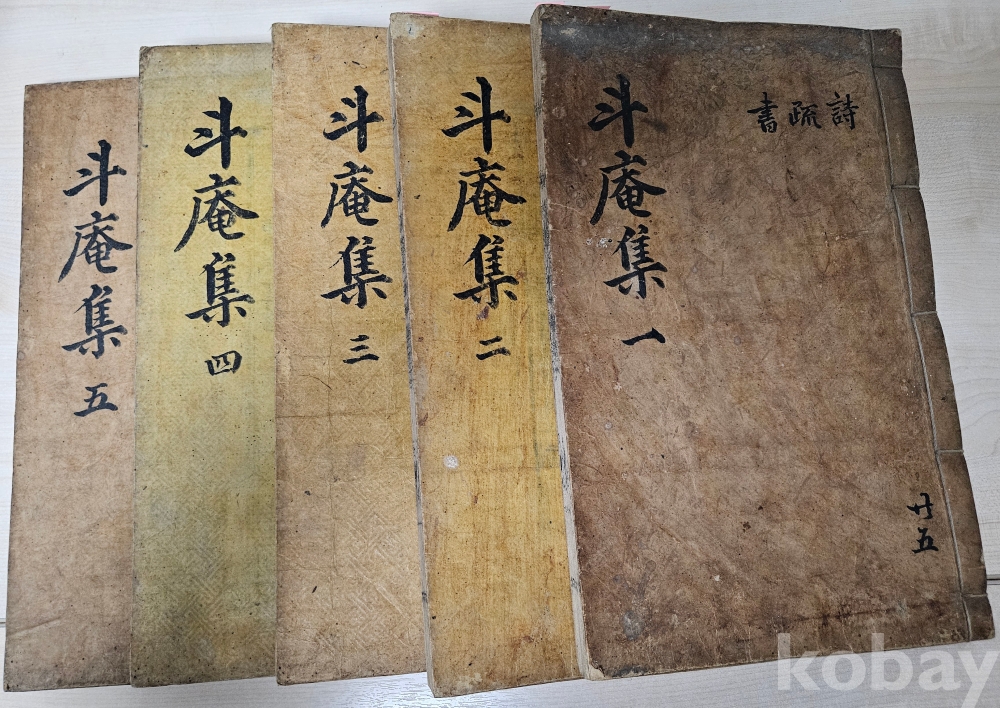 斗庵集 一
詩疏書
廿五
斗庵集 二
斗庵集 三
斗庵集 四
斗庵集 五
kobay